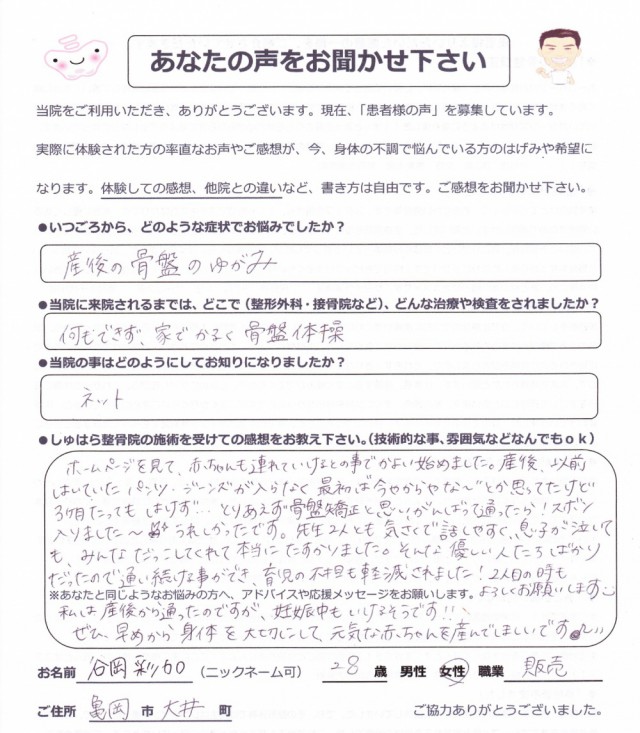 あなたの声をお聞かせ下さい
当院をご利用いただき、ありがとうございます。現在、「患者様の声」を募集しています。
実際に体験された方の率直なお声やご感想が、今、身体の不調で悩んでいる方のはげみや希望に
なります。体験しての感想、他院との違いなど、書き方は自由です。ご感想をお聞かせ下さい。
●いつごろから、どのような症状でお悩みでしたか？
産後の骨盤のゆがみ
●当院に来院されるまでは、どこで（整形外科・接骨院など）、どんな治療や検査をされましたか？
何もできず、家でかるく骨盤体操
●当院の事はどのようにしてお知りになりましたか？
ネット
●しゅはら整骨院の施術を受けての感想をお教え下さい。（技術的な事、雰囲気などなんでもｏｋ）
ホームページを見て、赤ちゃんも連れていけるとの事でかよい始めました。産後、以前
はいていたパンツ・ジーンズが入らなく最初は今やからやな〜"とか思ってたけど
3ヶ月たってもはけず… とりあえず骨盤矯正と思い、がんばって通ったら！ズボン
入りました〜 うれしかったです。先生2人とも気さくで話しやすく、息子が泣いて
も、みんなだっこしてくれて本当にたすかりました。そんな優しい人たちばかり
だったので通い続ける事ができ、育児の不担も軽減されました！2人目の時も
よろしくお願いします
※あなたと同じようなお悩みの方へ、アドバイスや応援メッセージをお願いします。
私は産後から通ったのですが、妊娠中もいけるそうです!!
ぜひ、早めから身体を大切にして、元気な赤ちゃんを産んでほしいです
お名前 谷岡彩加 （ニックネーム可） 28 歳 男性 女性 職業 販売
ご住所 亀岡 市 大井 町 ご協力ありがとうございました。